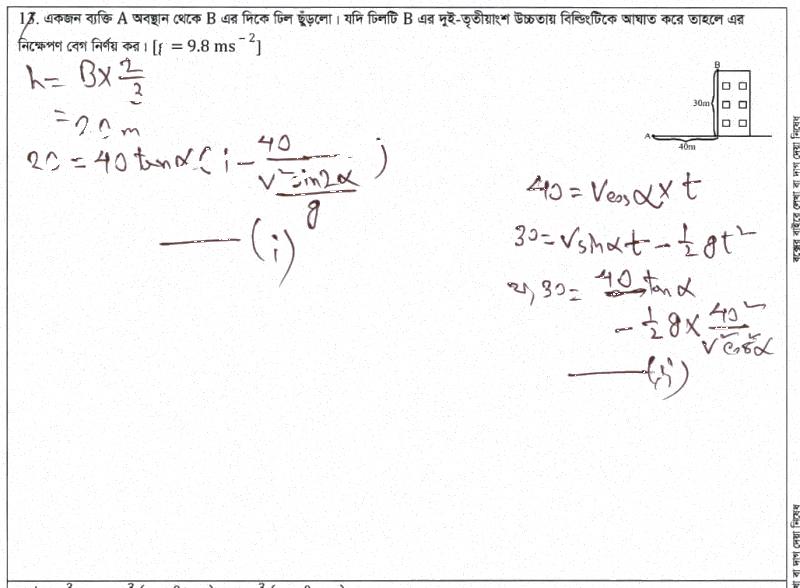 17. একজন ব্যক্তি A অবস্থান থেকে B এর দিকে ঢিল ছুঁড়লো। যদি ঢিলটি B এর দুই-তৃতীয়াংশ উচ্চতায় বিল্ডিংটিকে আঘাত করে তাহলে এর
নিক্ষেপণ বেগ নির্ণয় কর। [g = 9.8 ms⁻²]
h = B × 2/3
= 20 m
20 = 40 tanα (1 - 40 / (v² sin2α / g))
—— (i)
B
30m
A
40m
40 = v cosα × t
30 = v sinα t - 1/2 gt²
বা, 30 = 40 tanα
- 1/2 g × 40² / v² cos²α
—— (ii)
বক্সের বাইরে লেখা বা দাগ দেয়া নিষেধ
খা বা দাগ দেয়া নিষেধ